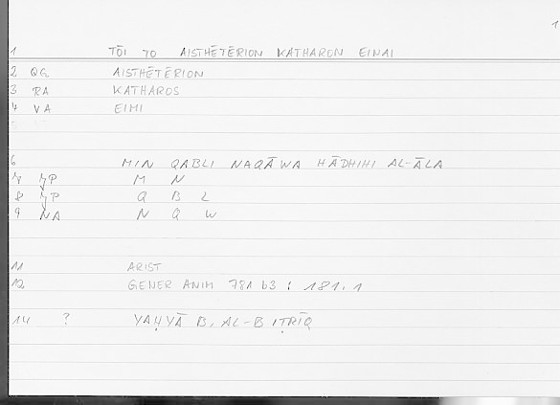 1
1 TŌI TO AISTHĒTĒRION KATHARON EINAI
2 QG AISTHĒTĒRION
3 RA KATHAROS
4 VA EIMI
6 MIN QABLI NAQĀWA HĀDHIHI AL-ĀLA
P M N
8 P Q B L
9 NA N Q W
11 ARIST
12 GENER ANIM 781 b3 : 181.1
14 ? YAḤYĀ B. AL-BIṬRĪQ